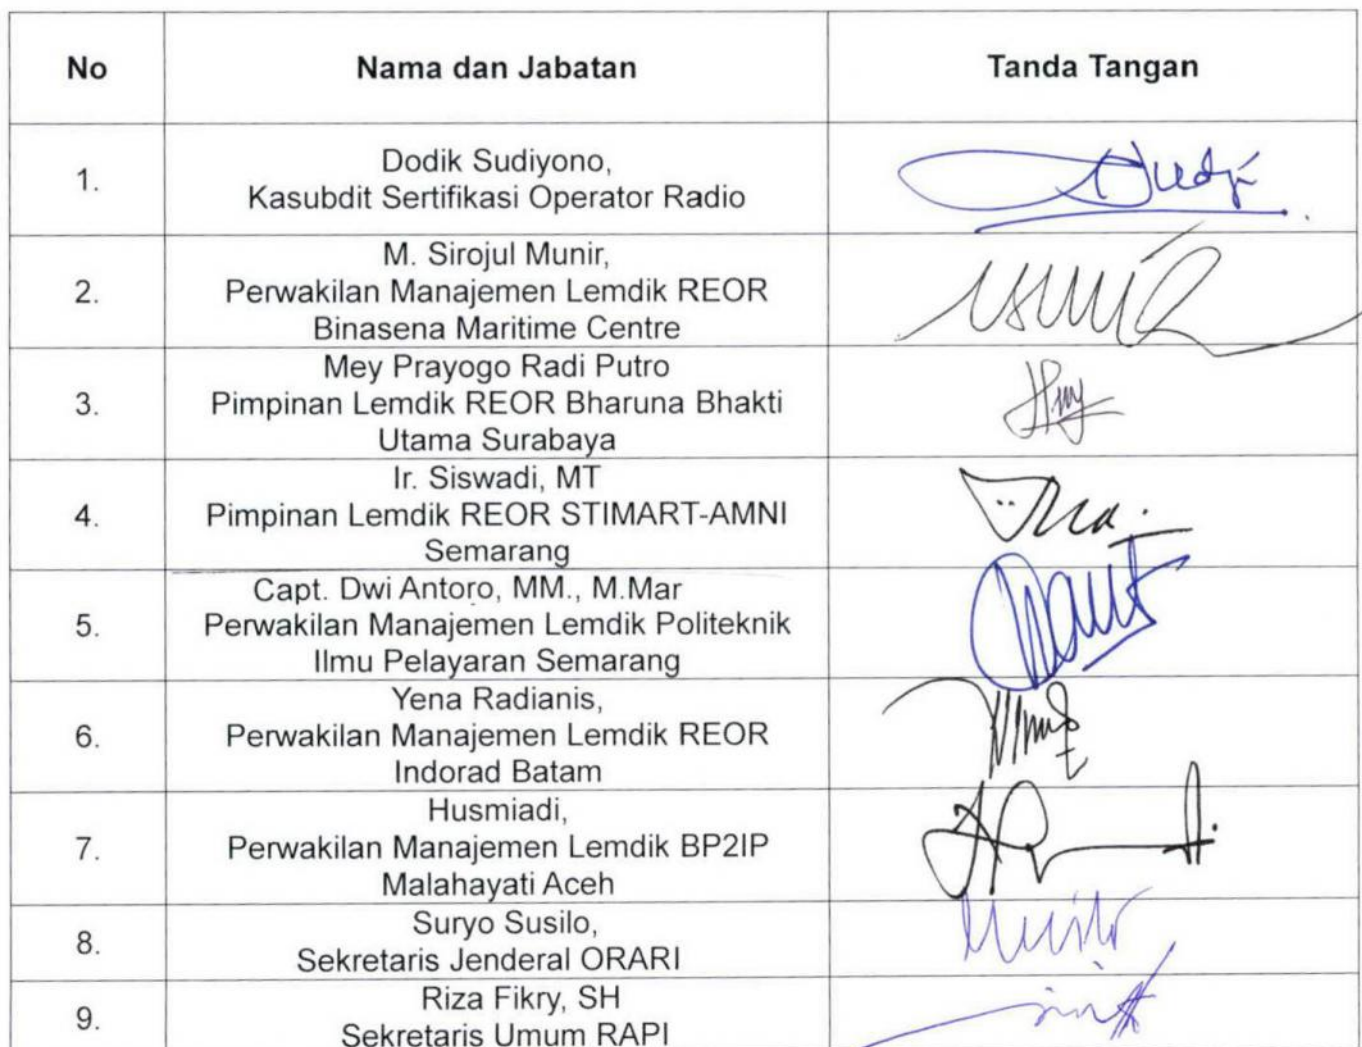 No Nama dan Jabatan Tanda Tangan
1. Dodik Sudiyono,
Kasubdit Sertifikasi Operator Radio
2. M. Sirojul Munir,
Perwakilan Manajemen Lemdik REOR
Binasena Maritime Centre
3. Mey Prayogo Radi Putro
Pimpinan Lemdik REOR Bharuna Bhakti
Utama Surabaya
4. Ir. Siswadi, MT
Pimpinan Lemdik REOR STIMART-AMNI
Semarang
5. Capt. Dwi Antoro, MM., M.Mar
Perwakilan Manajemen Lemdik Politeknik
Ilmu Pelayaran Semarang
6. Yena Radianis,
Perwakilan Manajemen Lemdik REOR
Indorad Batam
7. Husmiadi,
Perwakilan Manajemen Lemdik BP2IP
Malahayati Aceh
8. Suryo Susilo,
Sekretaris Jenderal ORARI
9. Riza Fikry, SH
Sekretaris Umum RAPI